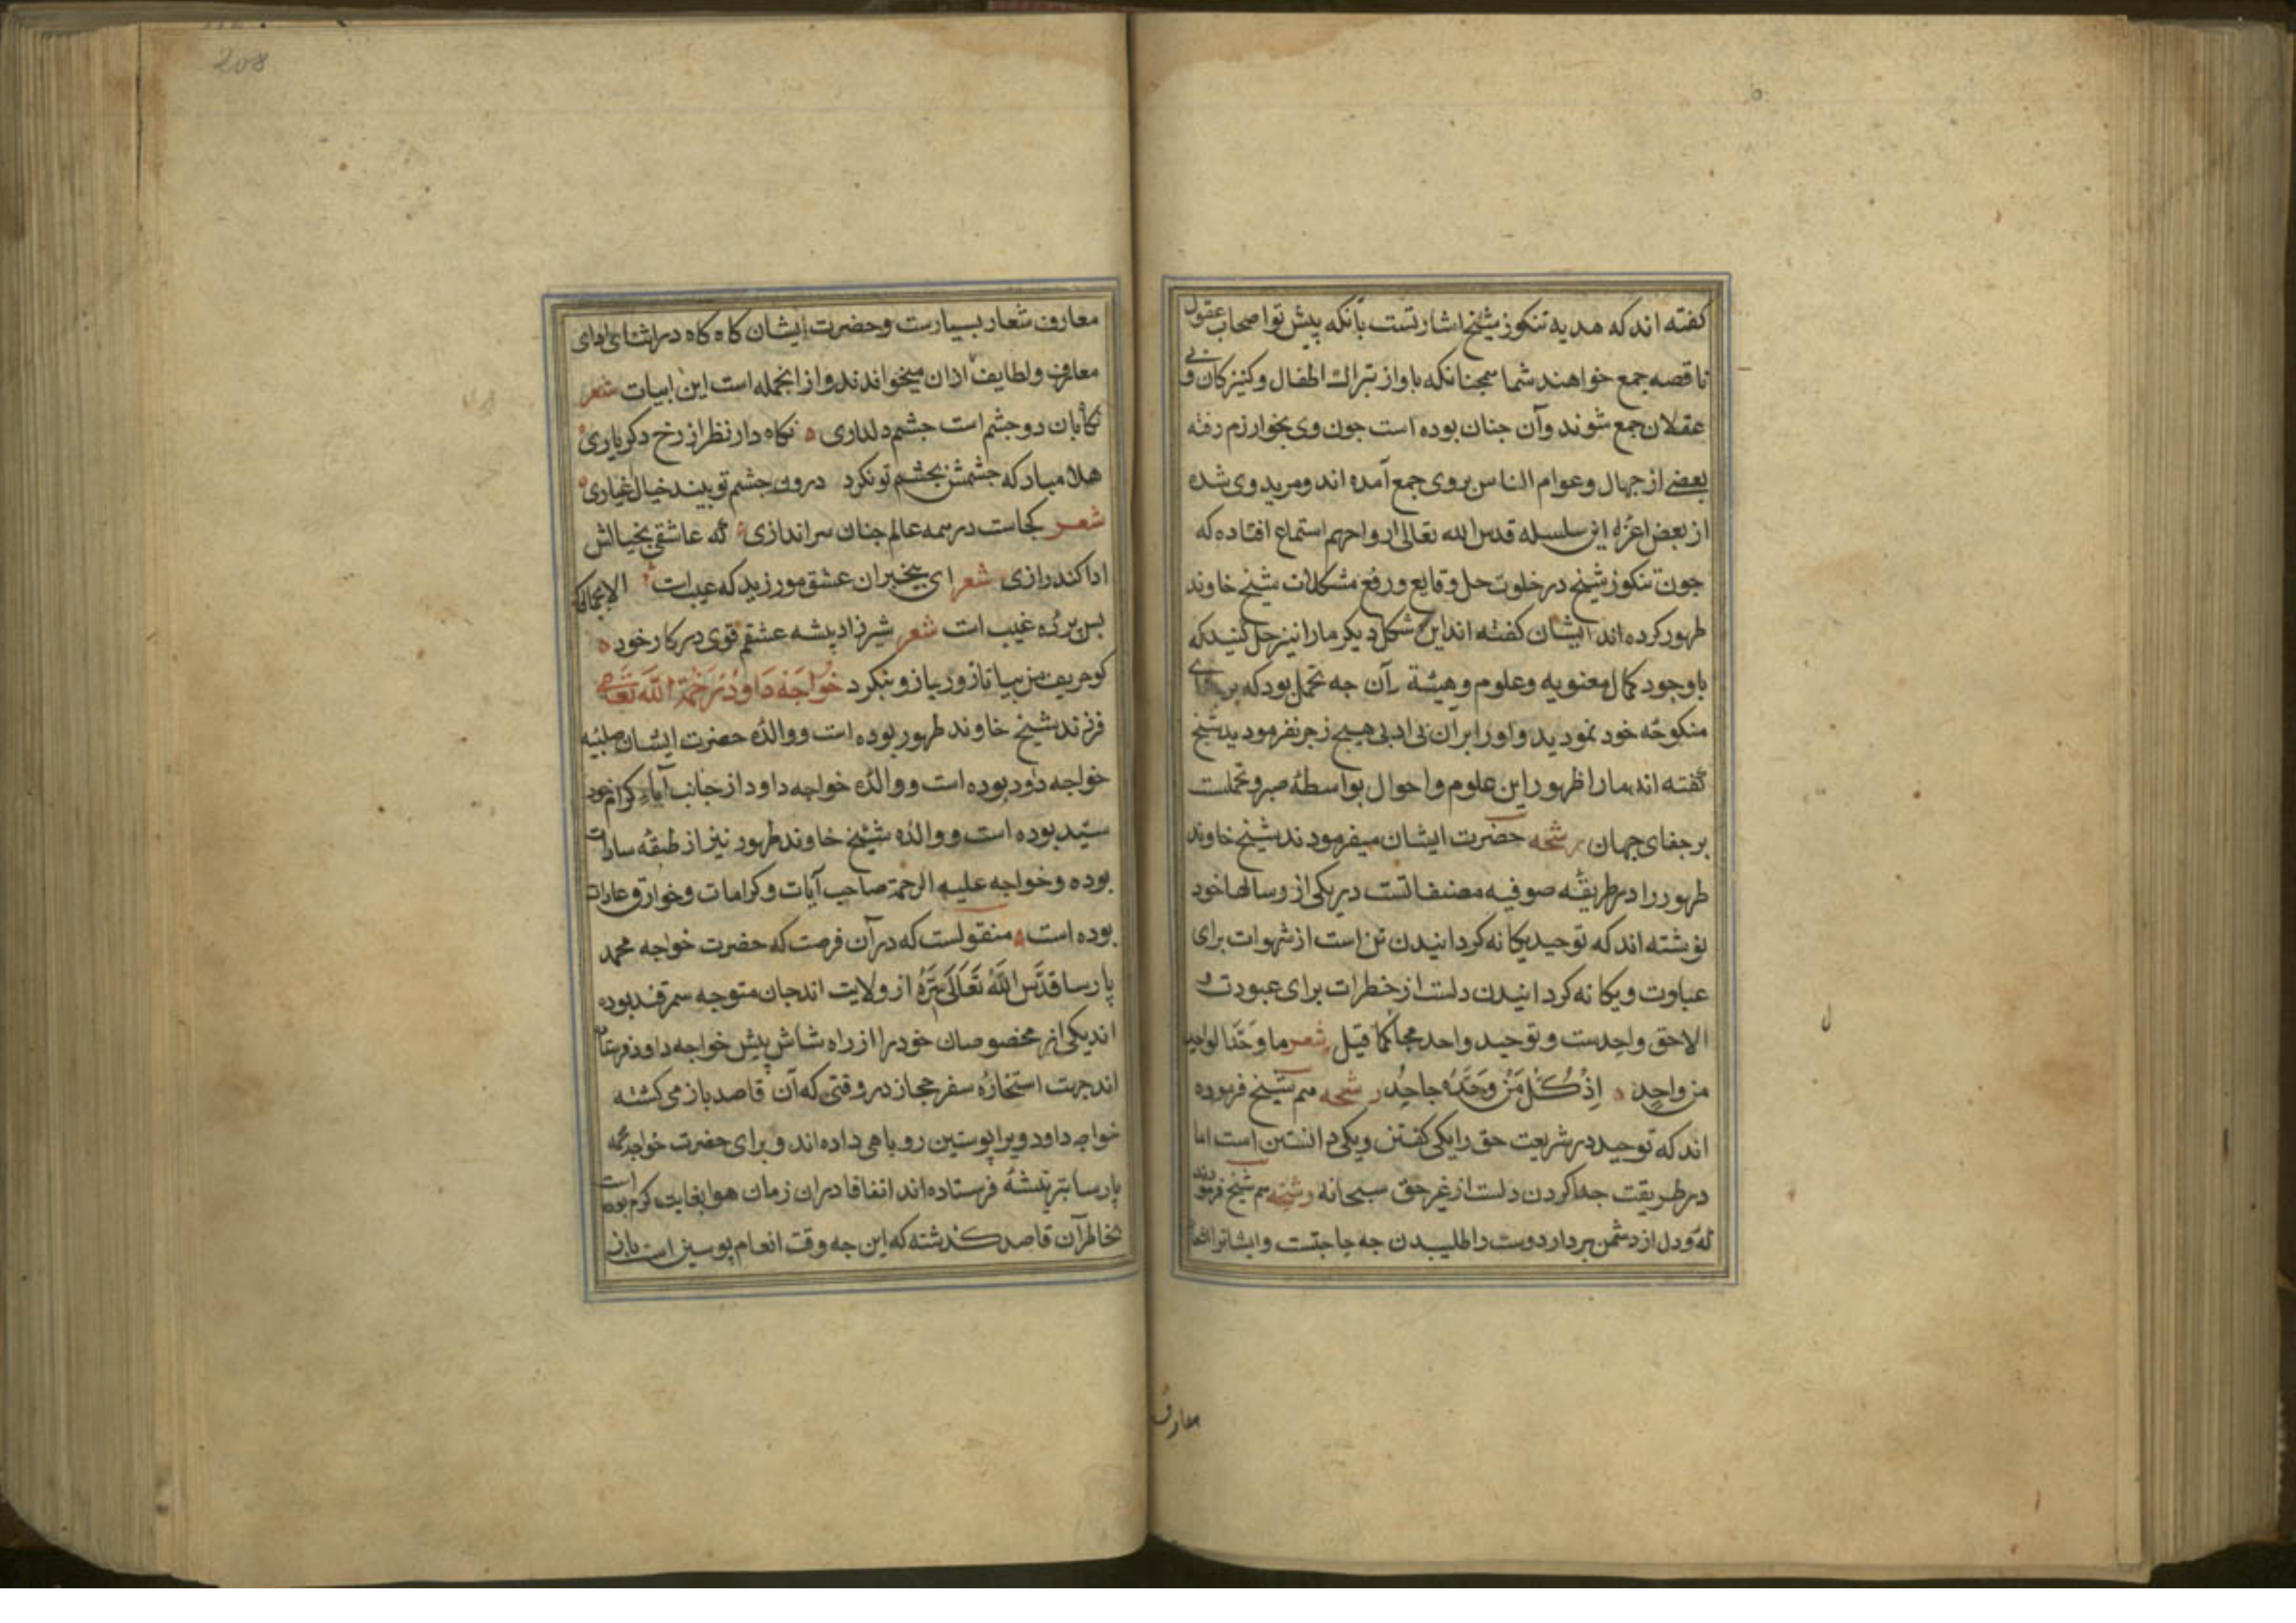 کفته اند که هدیه تنکوز شیخ اشارتست بآنکه پیش تو اصحاب عقول
ناقصه جمع خواهند شد همچنانکه باواز تنبراک اطفال و کنیزکان و بی
عقلان جمع شوند وآن جنان بوده است جون وی بخوارزم رفته
بعضی از جهال وعوام الناس بروی جمع آمده اند ومرید وی شده
از بعض اعزه این سلسله قدس الله تعالی ارواحهم استماع افتاده که
جون تنکوز شیخ در خلوت حل وقایع ورفع مشکلات شیخ خاوند
طهور کرده اند ایشان کفته اند این مشکل دیکر مارا نیز حل کنید که
باوجود کمال معنویه وعلوم وهبیة آن جه تحمل بود که بر
منکوحه خود نمودید واورا بر آن بی ادبی هیچ زجر نفرمودید شیخ
کفته اند مارا ظهور این علوم واحوال بواسطه صبر وتحملست
بر جفای جهان رشحه حضرت ایشان میفرمودند شیخ خاوند
طهور را در طریقه صوفیه مصنفاتست در یکی از رسالها خود
نوشته اند که توحید یکانه کردانیدن تن است از شهوات برای
عبادت ویکانه کردانیدن دلست از خطرات برای عبودت و
الا حق واحدست وتوحید واحد محا کما قیل شعر ما وَحَّدَ الواحِدَ
من واحِدٍ ه اِذْ کُلُّ مَنْ وَحَّدَهُ جاحِدُ رشحه هم شیخ فرموده
اند که توحید در شریعت حق را یکی کفتن ویکی دانستن است اما
در طریقت جدا کردن دلست از غیر حق سبحانه رشحه هم شیخ فرموده
که ودل از دشمن بردار دوست را طلبیدن جه حاجتست وایشانرا اشعار
معارف
208
معارف شعار بسیارست وحضرت ایشان کاه کاه در اثنای ادای
معارف ولطایف ازان میخواندند واز انجمله است این ابیات شعر
نکاهبان دو جشم است جشم دلداری ه نکاه دار نظر از رخ دکر یاری ه
هلا مباد که جشمش بجشم تو نکرد درون جشم تو بیند خیال اغیاری ه
شعر کجاست در همه عالم جنان سراندازی ه که عاشقی بخیالش
ادا کند رازی شعر ای بیخبران عشق مورزید که عیب است الا بجمالی که
پس پرده غیب است شعر شیر زاد بیشه عشقم قوی در کار خود ه
کو حریف من بیا تا زور بازو بنکرد خواجَه دَاودْ رَحْمَةُ اللّٰه تَعَالی
فرزند شیخ خاوند طهور بوده است ووالده حضرت ایشان صلبیه
خواجه داود بوده است ووالده خواجه داود از جانب آباء کرام خود
سیّد بوده است ووالده شیخ خاوند طهور نیز از طبقه سادات
بوده وخواجه علیه الرحمة صاحب آیات وکرامات وخوارق عادات
بوده است ه منقولست که در آن فرصت که حضرت خواجه محمد
پارسا قَدَّسَ اللهُ تَعَالَی سِرَّهُ از ولایت اندجان متوجه سمرقند بوده
اند یکی از مخصوصان خود را از راه شاش پیش خواجه داود فرستاده
اند جهت استخاره سفر حجاز در وقتی که آن قاصد باز می کشته
خواجه داود ویرا پوستین روباهی داده اند وبرای حضرت خواجه محمد
پارسا تیشهٔ فرستاده اند اتفاقا در ان زمان هوا بغایت کرم بوده است
بخاطر آن قاصد کذشته که این جه وقت انعام پوستین است باز